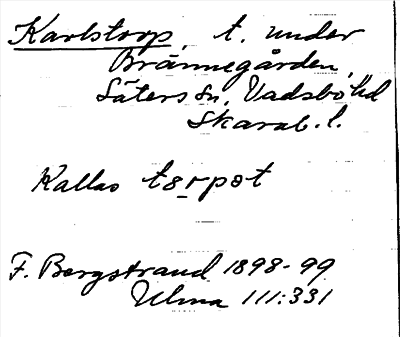 Karlstorp, t. under
Brännegården,
Säters sn, Vadsbo hd
Skarab. l.
Kallas t8rpət
F. Bergstrand 1898-99
Ulma 111:331